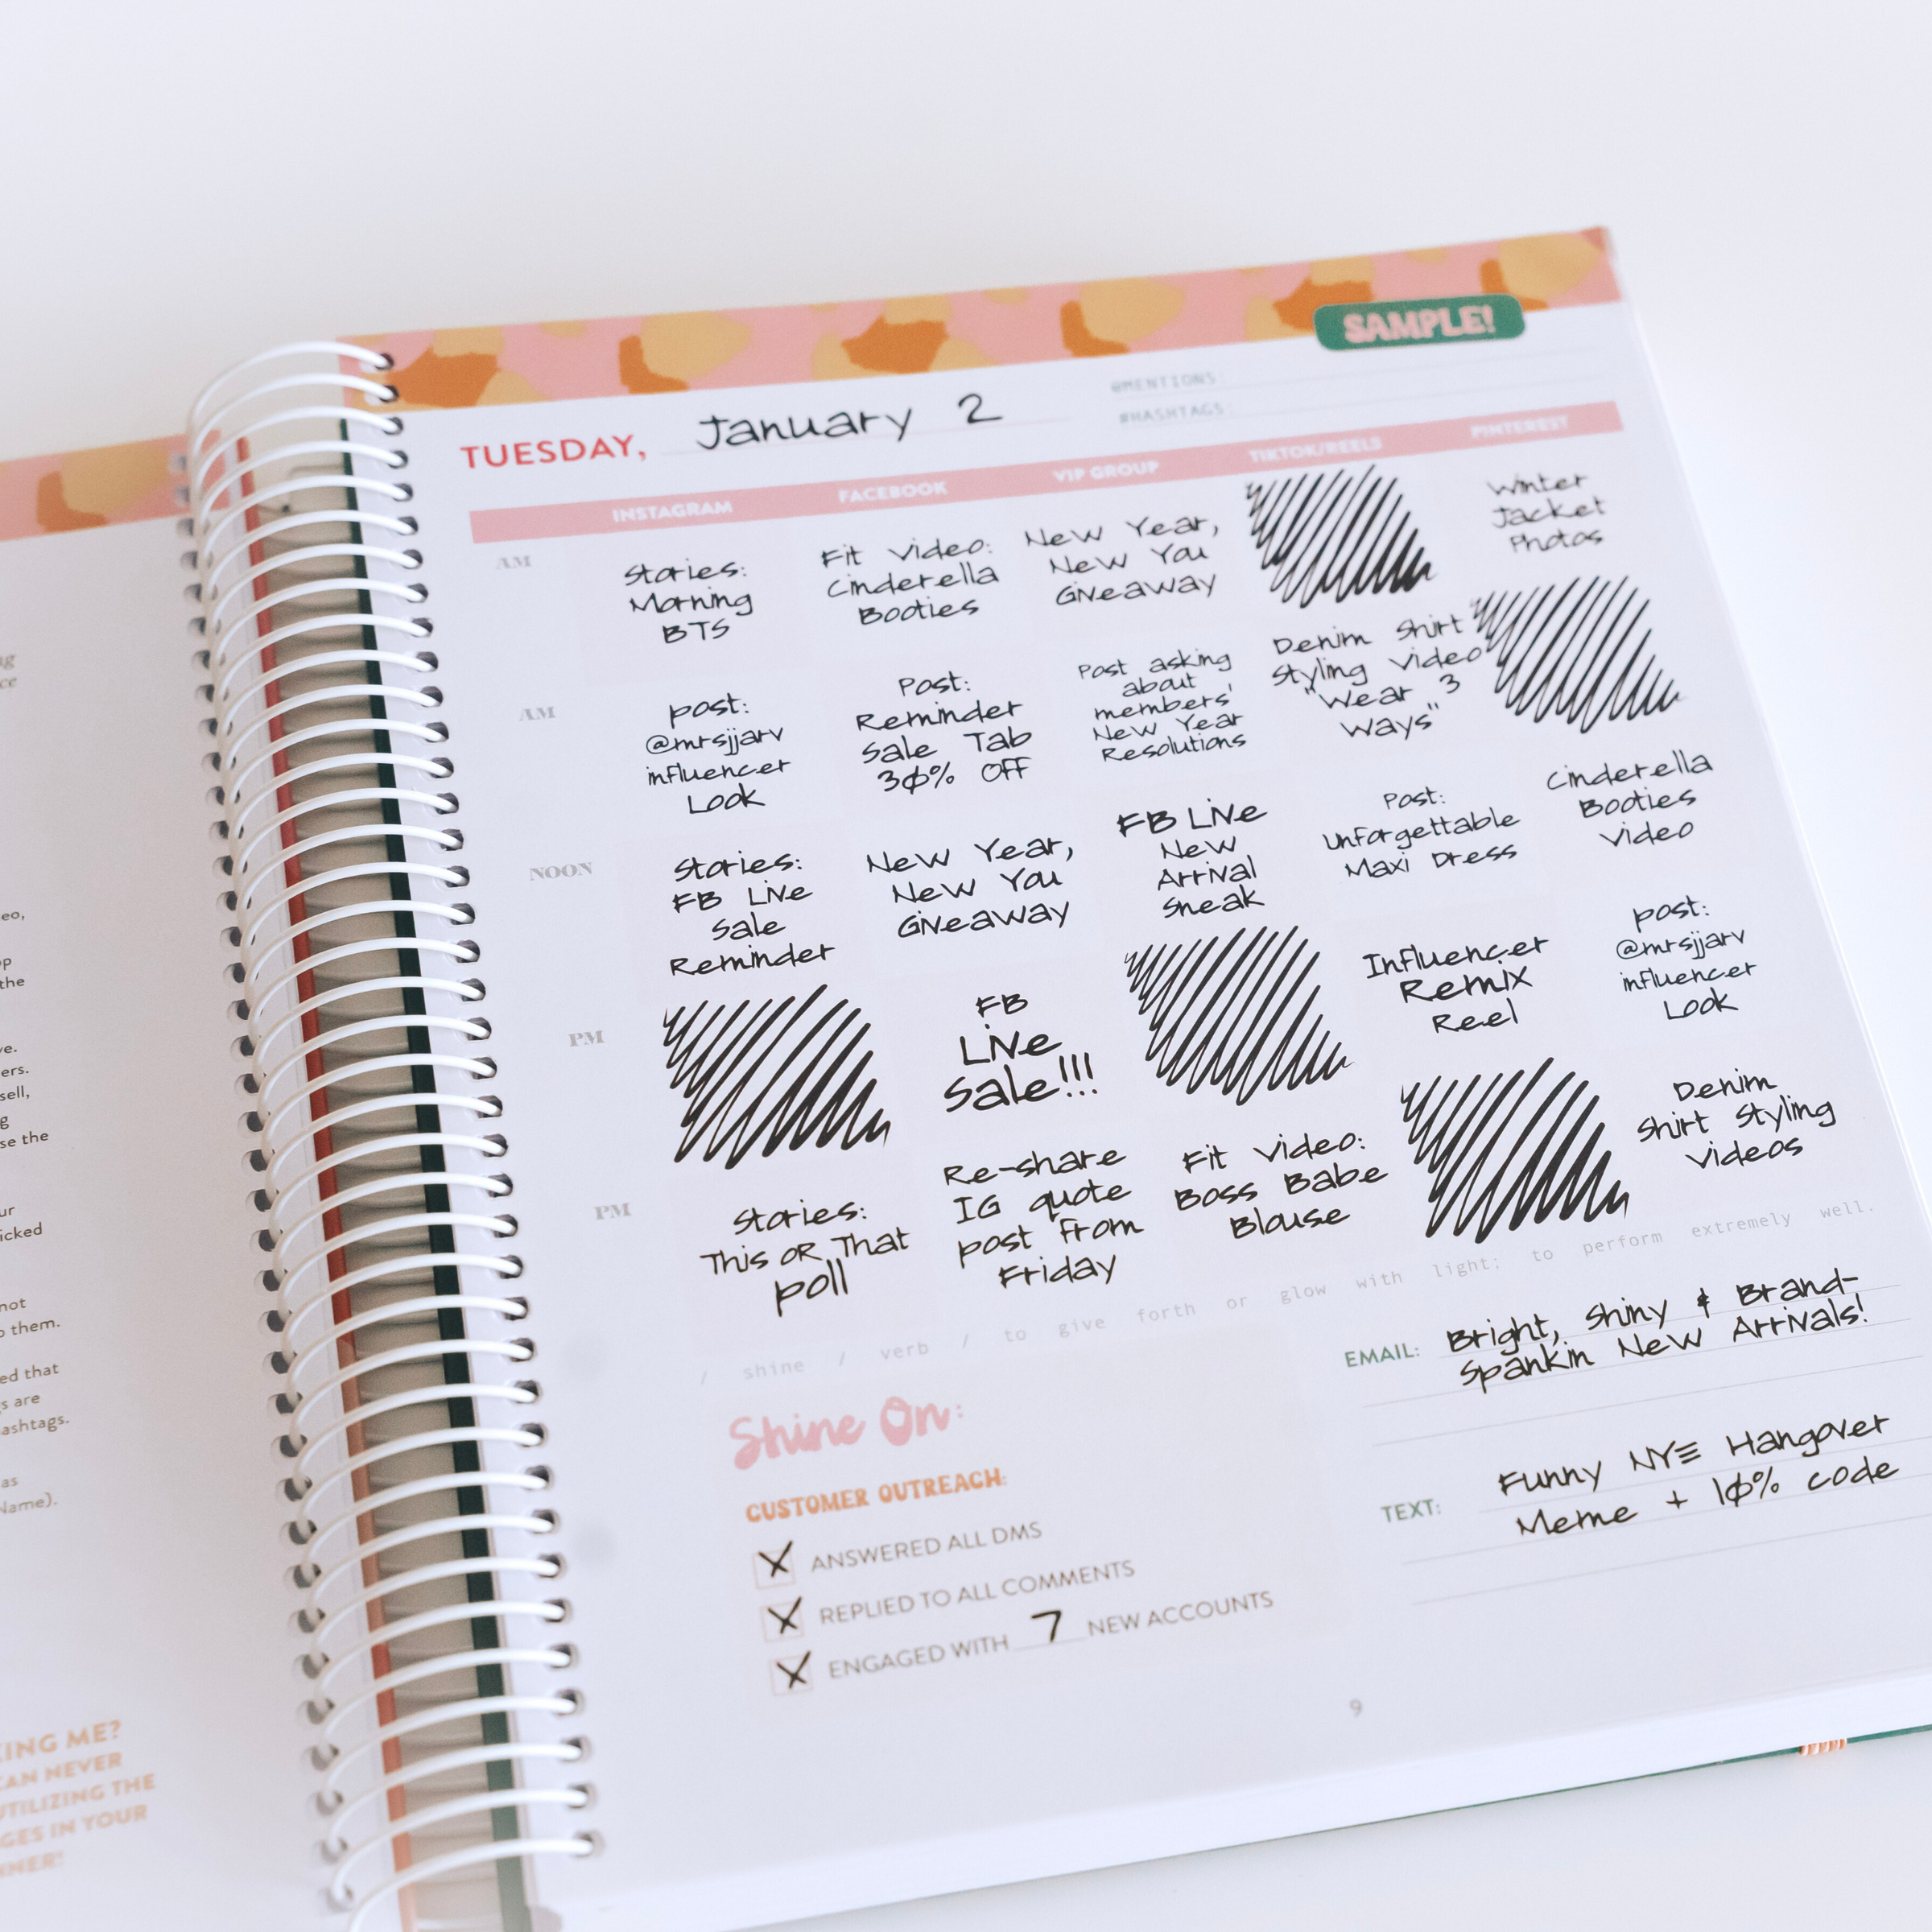 SAMPLE!
TUESDAY, January 2
@MENTIONS:
#HASHTAGS:
INSTAGRAM FACEBOOK VIP GROUP TIKTOK/REELS PINTEREST
AM
Stories:
Morning
BTS
Fit Video:
Cinderella
Booties
New Year,
New You
Giveaway
Winter
Jacket
Photos
AM
Post:
@mrsjjarv
influencer
Look
Post:
Reminder
Sale Tab
30% OFF
Post asking
about
members'
New Year
Resolutions
Denim Shirt
Styling Video
"Wear 3
Ways"
NOON
Stories:
FB Live
Sale
Reminder
New Year,
New You
Giveaway
FB Live
New
Arrival
Sneak
Post:
Unforgettable
Maxi Dress
Cinderella
Booties
Video
PM
FB
Live
Sale!!!
Influencer
Remix
Reel
Post:
@mrsjjarv
influencer
Look
PM
Stories:
This OR That
Poll
Re-share
IG quote
post from
Friday
Fit Video:
Boss Babe
Blouse
Denim
Shirt Styling
Videos
/ shine / verb / to give forth or glow with light; to perform extremely well.
Shine On:
CUSTOMER OUTREACH:
ANSWERED ALL DMS
REPLIED TO ALL COMMENTS
ENGAGED WITH 7 NEW ACCOUNTS
EMAIL: Bright, Shiny & Brand-
Spankin New Arrivals!
TEXT: Funny NYE Hangover
Meme + 10% code
9
eo,
the
ve.
ers.
sell,
se the
icked
not
them.
ed that
s are
ashtags.
as
Name).
KING ME?
CAN NEVER
UTILIZING THE
GES IN YOUR
NNER!